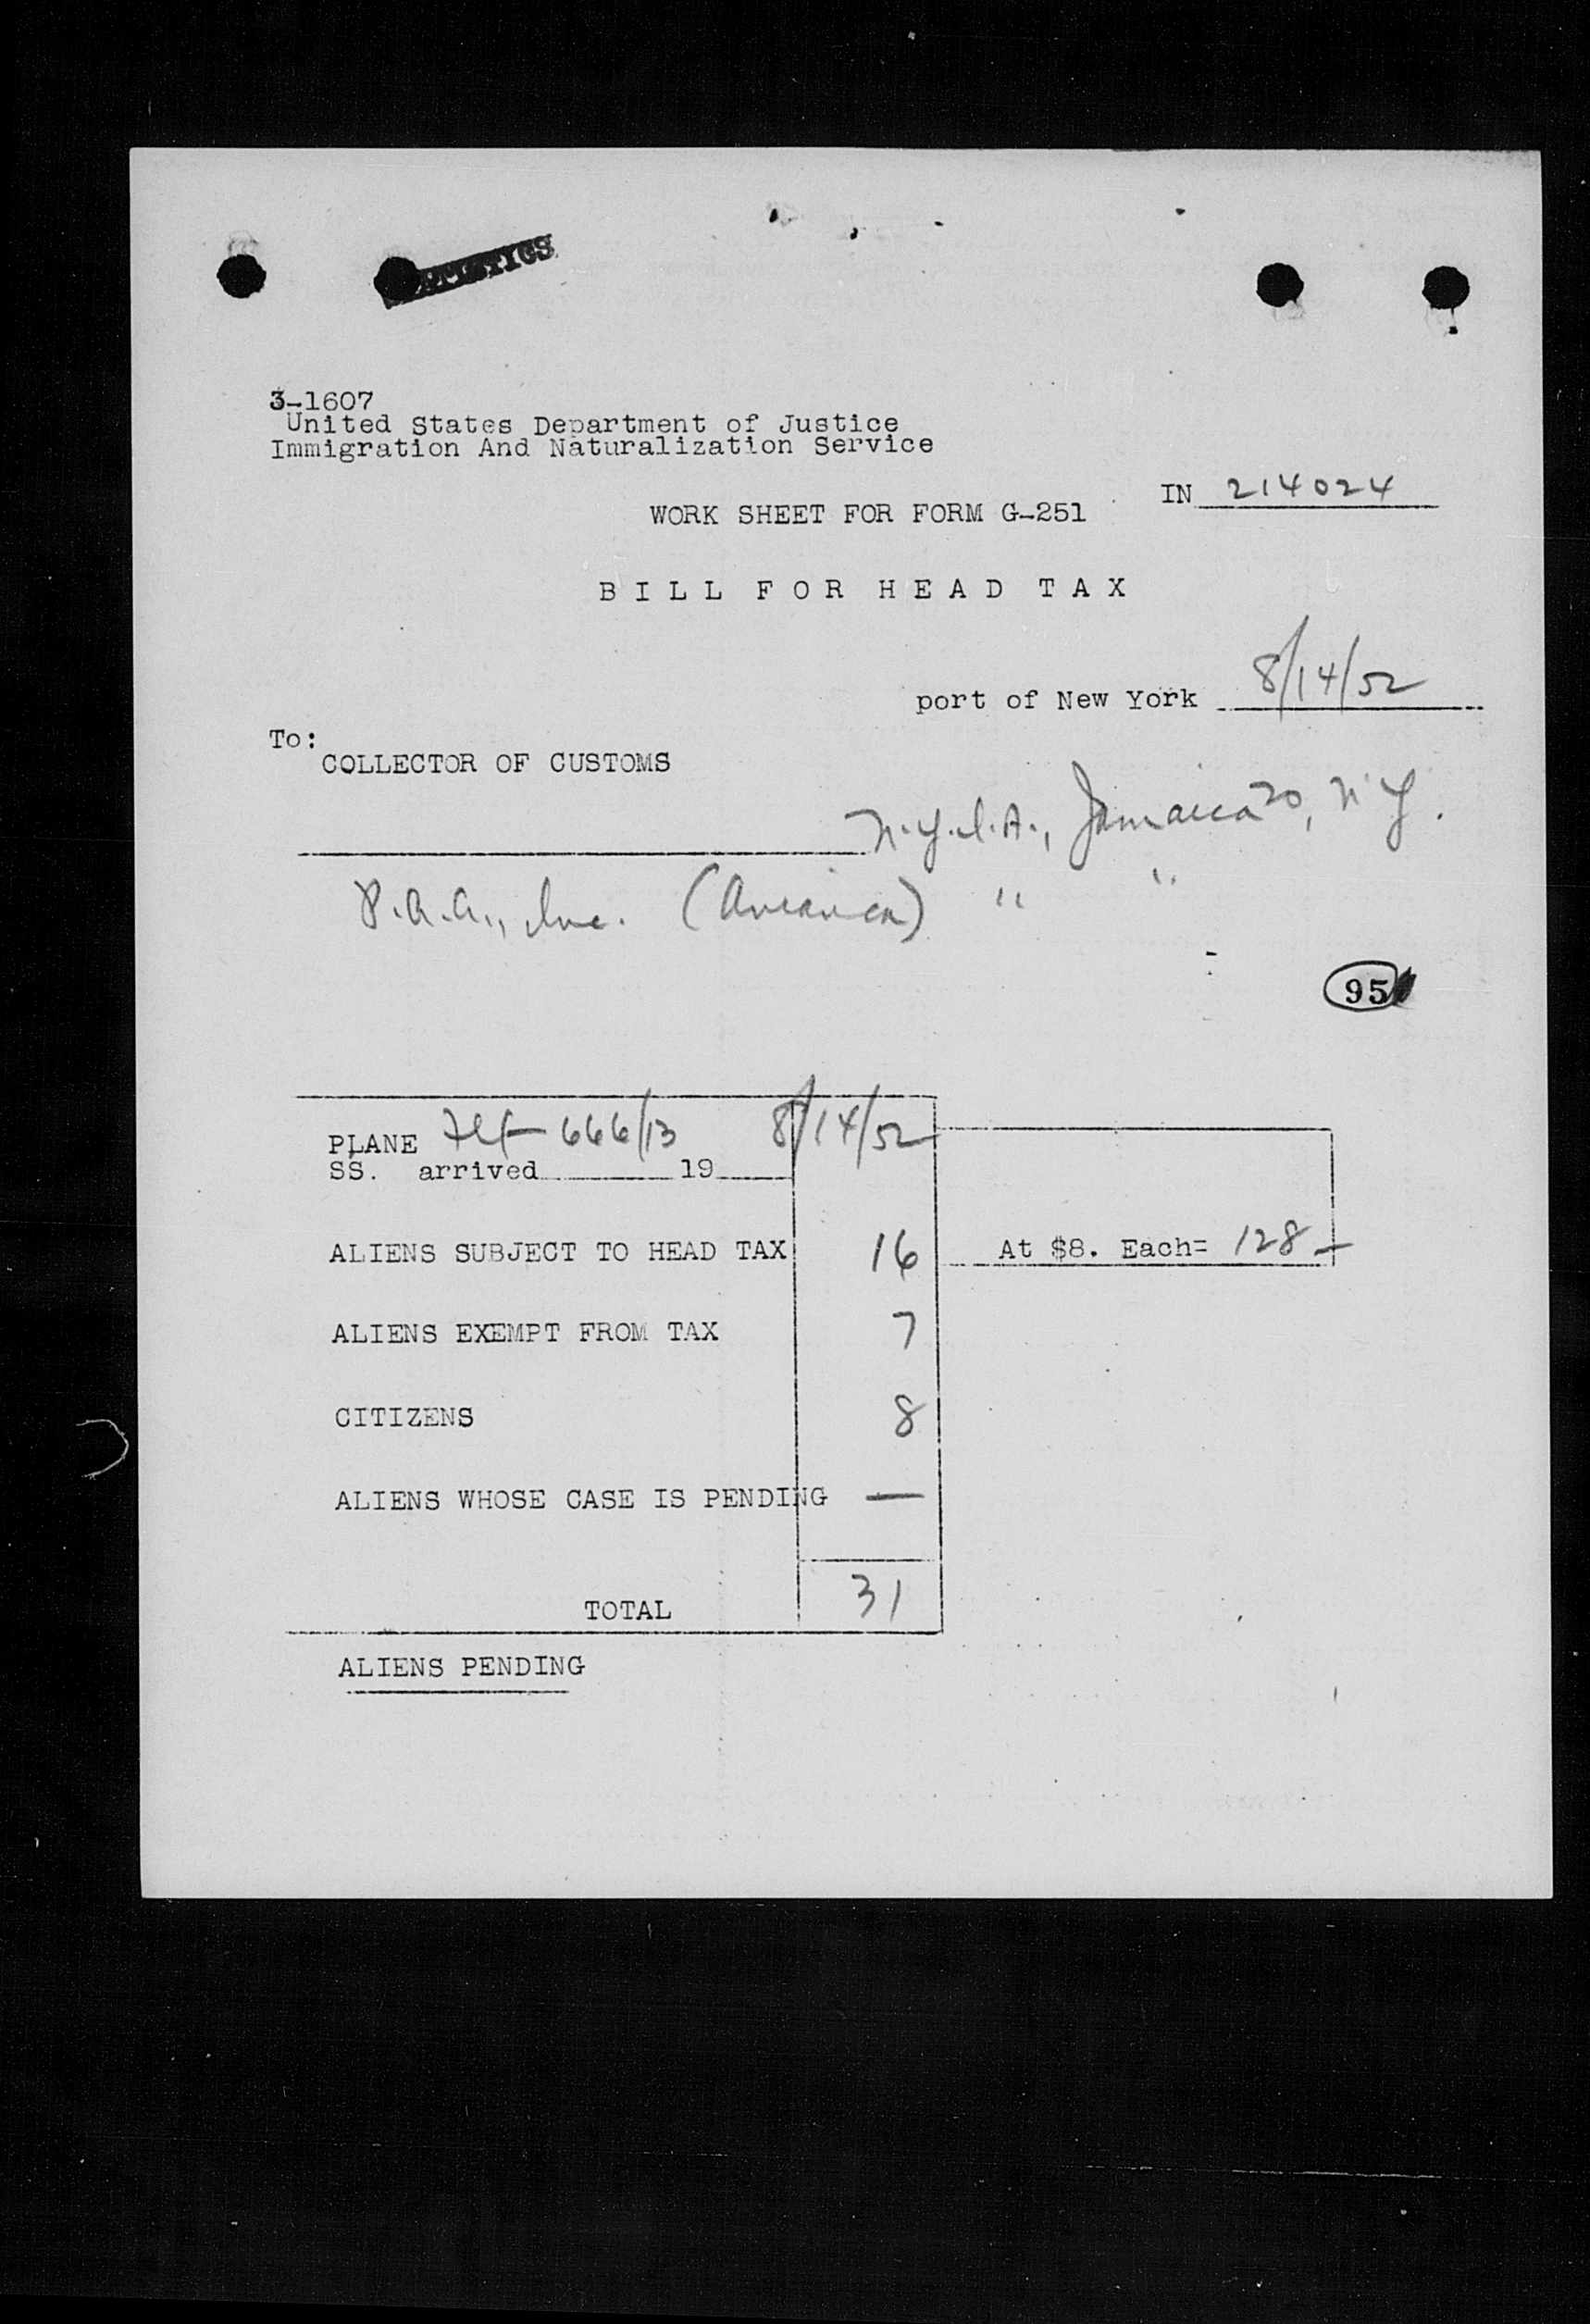 STATISTICS
3-1607
United States Department of Justice
Immigration And Naturalization Service
IN 214024
WORK SHEET FOR FORM G-251
BILL FOR HEAD TAX
port of New York 8/14/52
To:
COLLECTOR OF CUSTOMS
N.Y.I.A., Jamaica 30, N.Y.
P.A.A., Inc. (American) " "
95
PLANE Flt 666/13 8/14/52
SS. arrived 19
ALIENS SUBJECT TO HEAD TAX 16 At $8. Each= 128 —
ALIENS EXEMPT FROM TAX 7
CITIZENS 8
ALIENS WHOSE CASE IS PENDING —
TOTAL 31
ALIENS PENDING